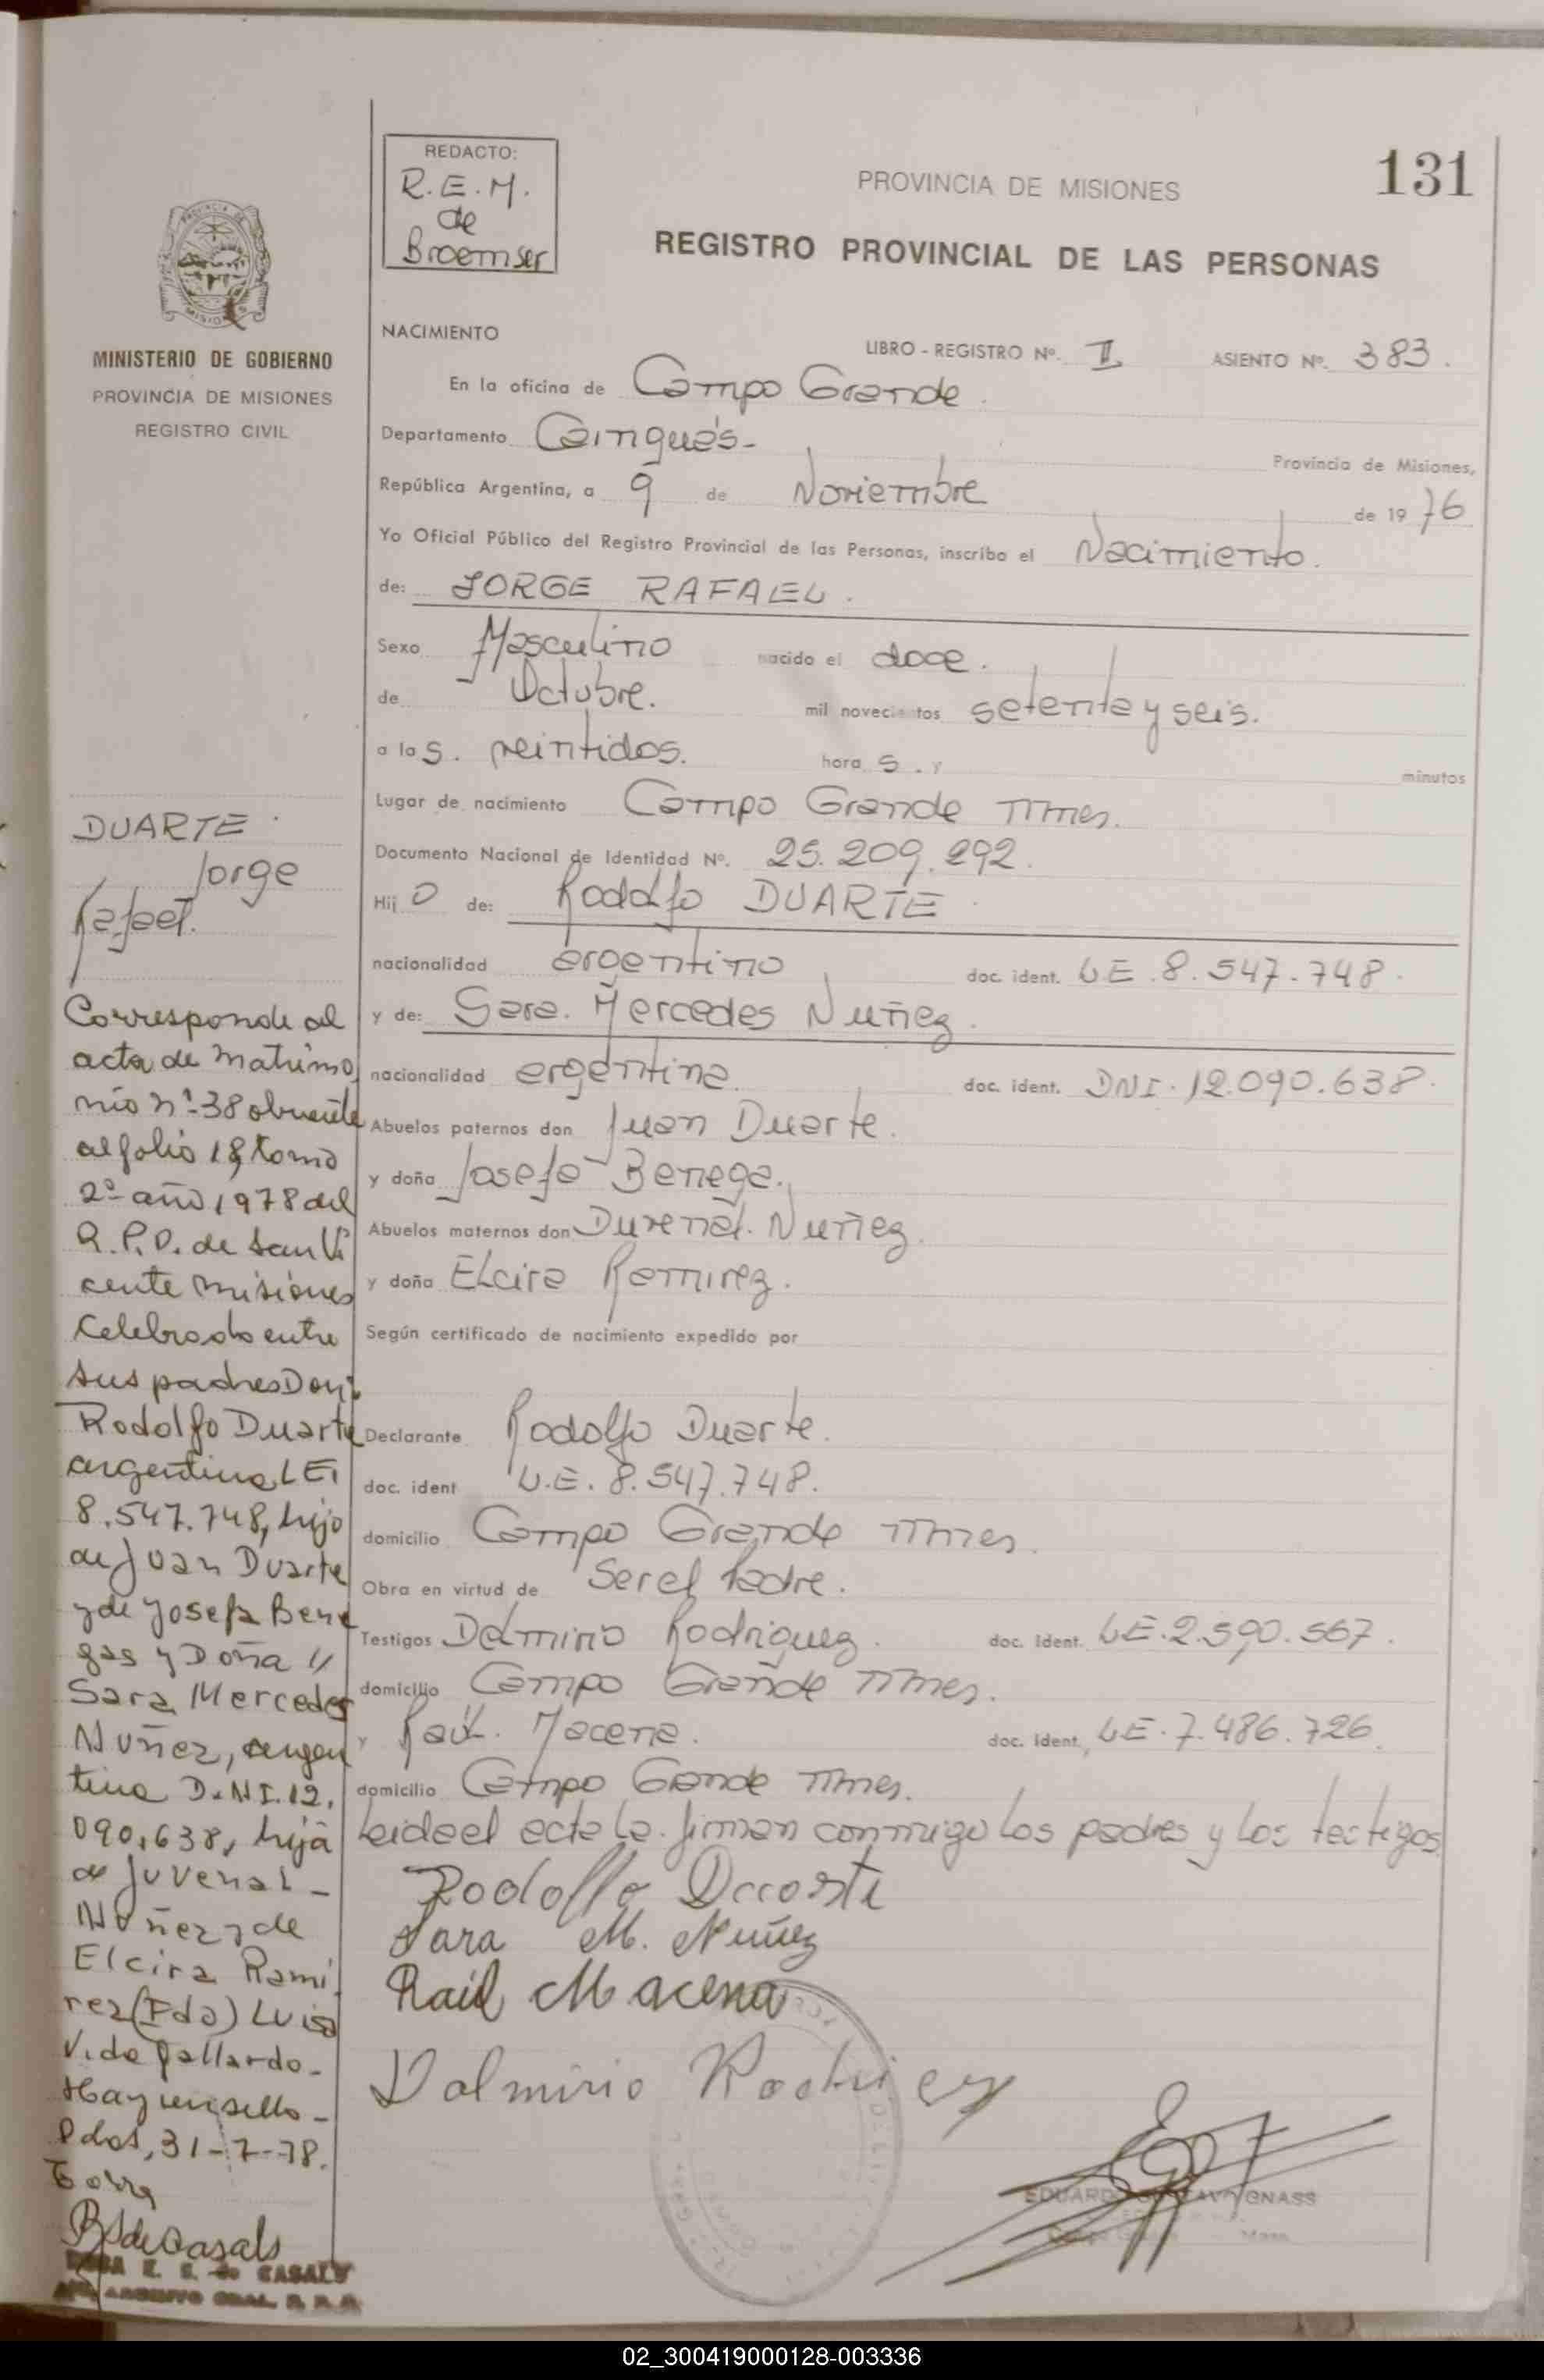 131
REDACTO:
R.E.M.
de
Broemser
PROVINCIA DE MISIONES
REGISTRO PROVINCIAL DE LAS PERSONAS
MINISTERIO DE GOBIERNO
PROVINCIA DE MISIONES
REGISTRO CIVIL
NACIMIENTO
LIBRO - REGISTRO Nº. II ASIENTO Nº. 383.
En la oficina de Campo Grande.
Departamento Cainguás- Provincia de Misiones,
República Argentina, a 9 de Noviembre de 1976
Yo Oficial Público del Registro Provincial de las Personas, inscribo el Nacimiento.
de: JORGE RAFAEL.
Sexo Masculino nacido el doce.
de Octubre. mil novecientos setenta y seis.
a las. veintidos. horas. y minutos
Lugar de nacimiento Campo Grande Mnes.
Documento Nacional de Identidad Nº. 25.209.292.
Hijo de: Rodolfo DUARTE.
nacionalidad argentino doc. ident. L.E. 8.547.748.
y de: Sara. Mercedes Nuñez.
nacionalidad argentina. doc. ident. DNI. 12.090.638.
Abuelos paternos don Juan Duarte.
y doña Josefa Benega.
Abuelos maternos don Juvenal. Nuñez.
y doña Elcira Ramirez.
Según certificado de nacimiento expedido por
Declarante Rodolfo Duarte.
doc. ident L.E. 8.547.748.
domicilio Campo Grande Mnes.
Obra en virtud de Ser el Padre.
Testigos Delmirio Rodriguez. doc. ident. LE.2.590.567.
domicilio Campo Grande Mnes.
y Raúl. Macena. doc. ident. LE.7.486.726.
domicilio Campo Grande Mnes.
Leida el acta la firman conmigo los padres y los testigos.
Rodolfo
Sara M. Nuñez
Raúl Macena
Dalmirio
DUARTE
Jorge
Rafael.
Corresponde al
acta de matrimo
nio nº 38 obrante
al folio 18, tomo
2º año 1978 del
R.P.P. de San Vi
cente Misiones
celebrado entre
sus padres Don:
Rodolfo Duarte
argentino LE.
8.547.748, hijo
de Juan Duarte
y de Josefa Bene
gas y Doña //
Sara Mercedes
Nuñez, argen
tina D.N.I. 12.
090.638, hija
de Juvenal-
Nuñez y de
Elcira Rami
rez (Fdo) Luisa
Vida Gallardo-
Hay un sello-
Pdas, 31-7-78.
E. S. de CASALS
02_300419000128-003336